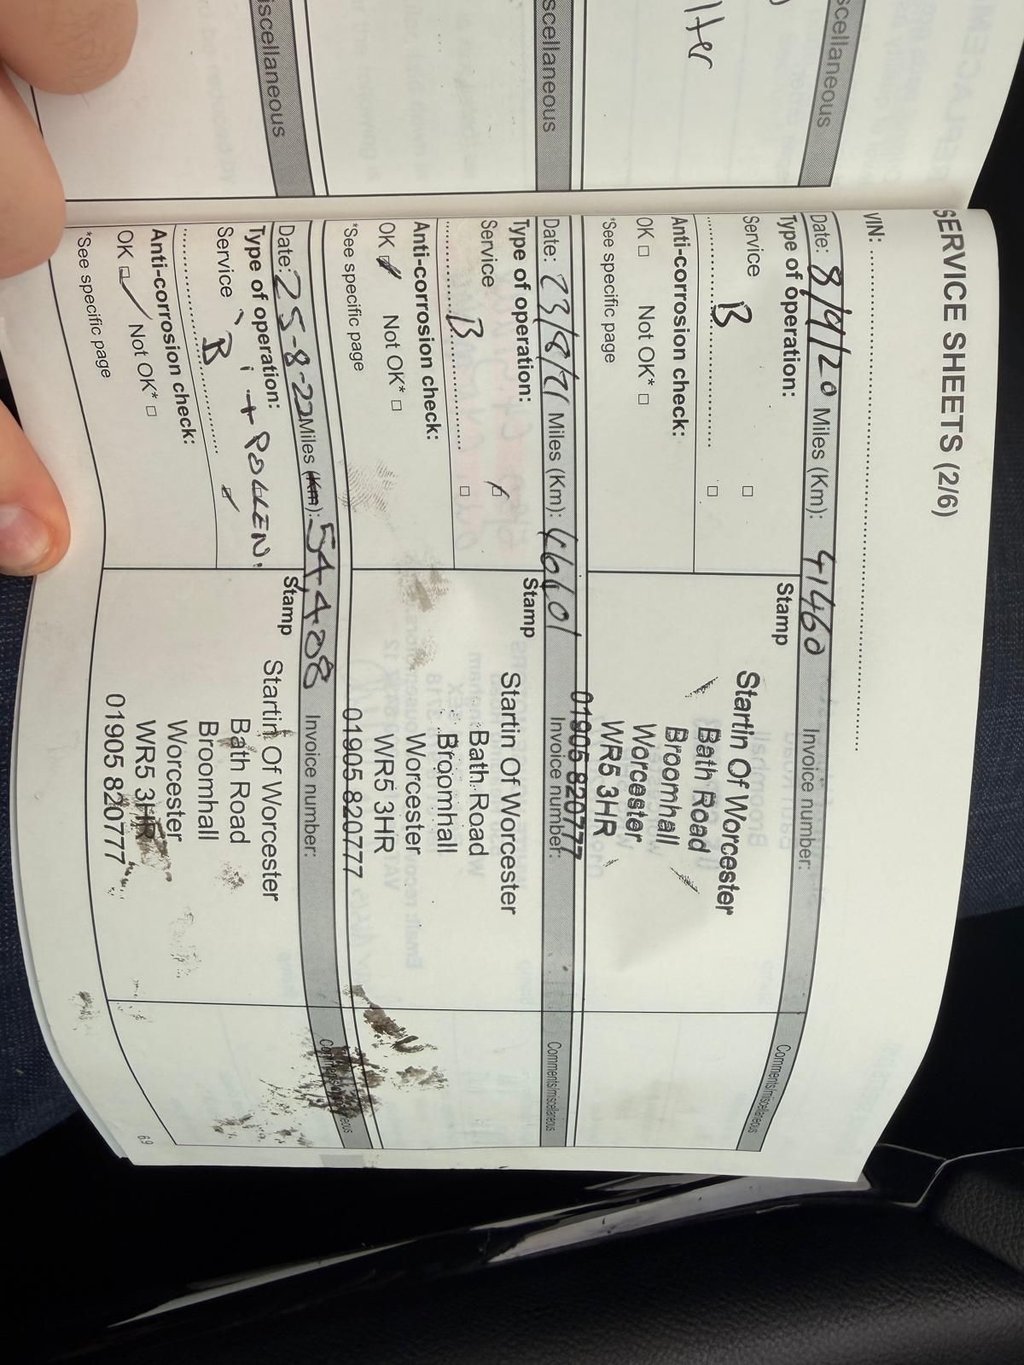 SERVICE SHEETS (2/6)
VIN:
Date: 8/9/20 Miles (Km): 41460 Invoice number: Comments/miscellaneous
Type of operation:
Service
B
Anti-corrosion check:
OK □ Not OK* □
*See specific page
Stamp
Startin Of Worcester
Bath Road
Broomhall
Worcester
WR5 3HR
01905 820777
Date: 23/8/21 Miles (Km): 46101 Invoice number: Comments/miscellaneous
Type of operation:
Service
B
Anti-corrosion check:
OK Not OK* □
*See specific page
Stamp
Startin Of Worcester
Bath Road
Broomhall
Worcester
WR5 3HR
01905 820777
Date: 25-8-22 Miles (Km): 54,408 Invoice number: Comments/miscellaneous
Type of operation: + POLLEN.
Service
B
Anti-corrosion check:
OK Not OK* □
*See specific page
Stamp
Startin Of Worcester
Bath Road
Broomhall
Worcester
WR5 3HR
01905 820777
69
scellaneous
scellaneous
iscellaneous
lter